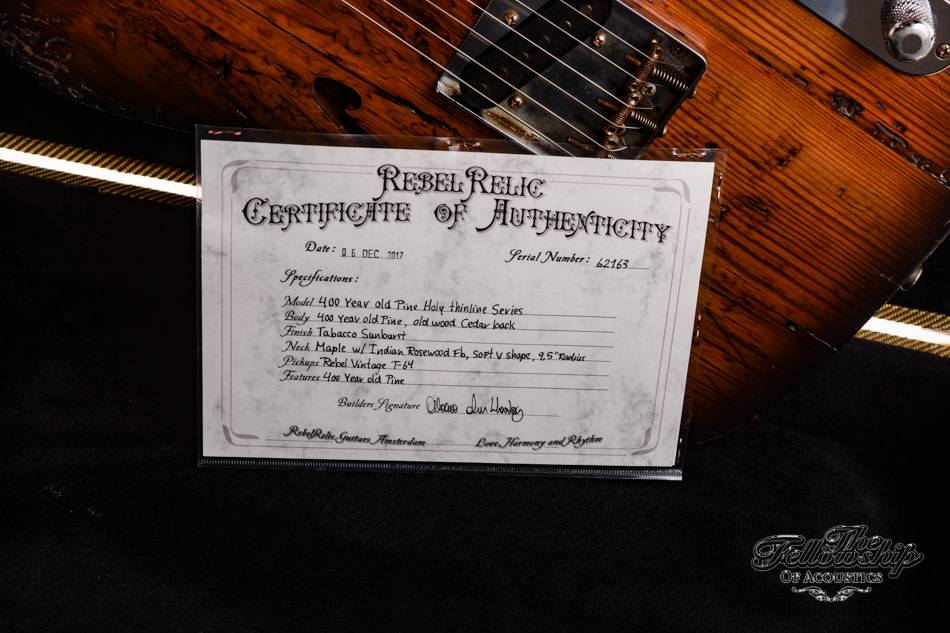 RebelRelic
Certificate of Authenticity
Date: 06 DEC 2017 Serial Number: 62163
Specifications:
Model 400 Year old Pine Holy thinline Series
Body 400 Year old Pine, old wood Cedar back
Finish Tabacco Sunburst
Neck Maple w/ Indian Rosewood Fb, Soft V shape, 9,5" Radius
Pickups Rebel Vintage T-64
Features 400 Year old Pine
Builders Signature
RebelRelic Guitars Amsterdam Love, Harmony and Rhythm
The
Fellowship
Of Acoustics